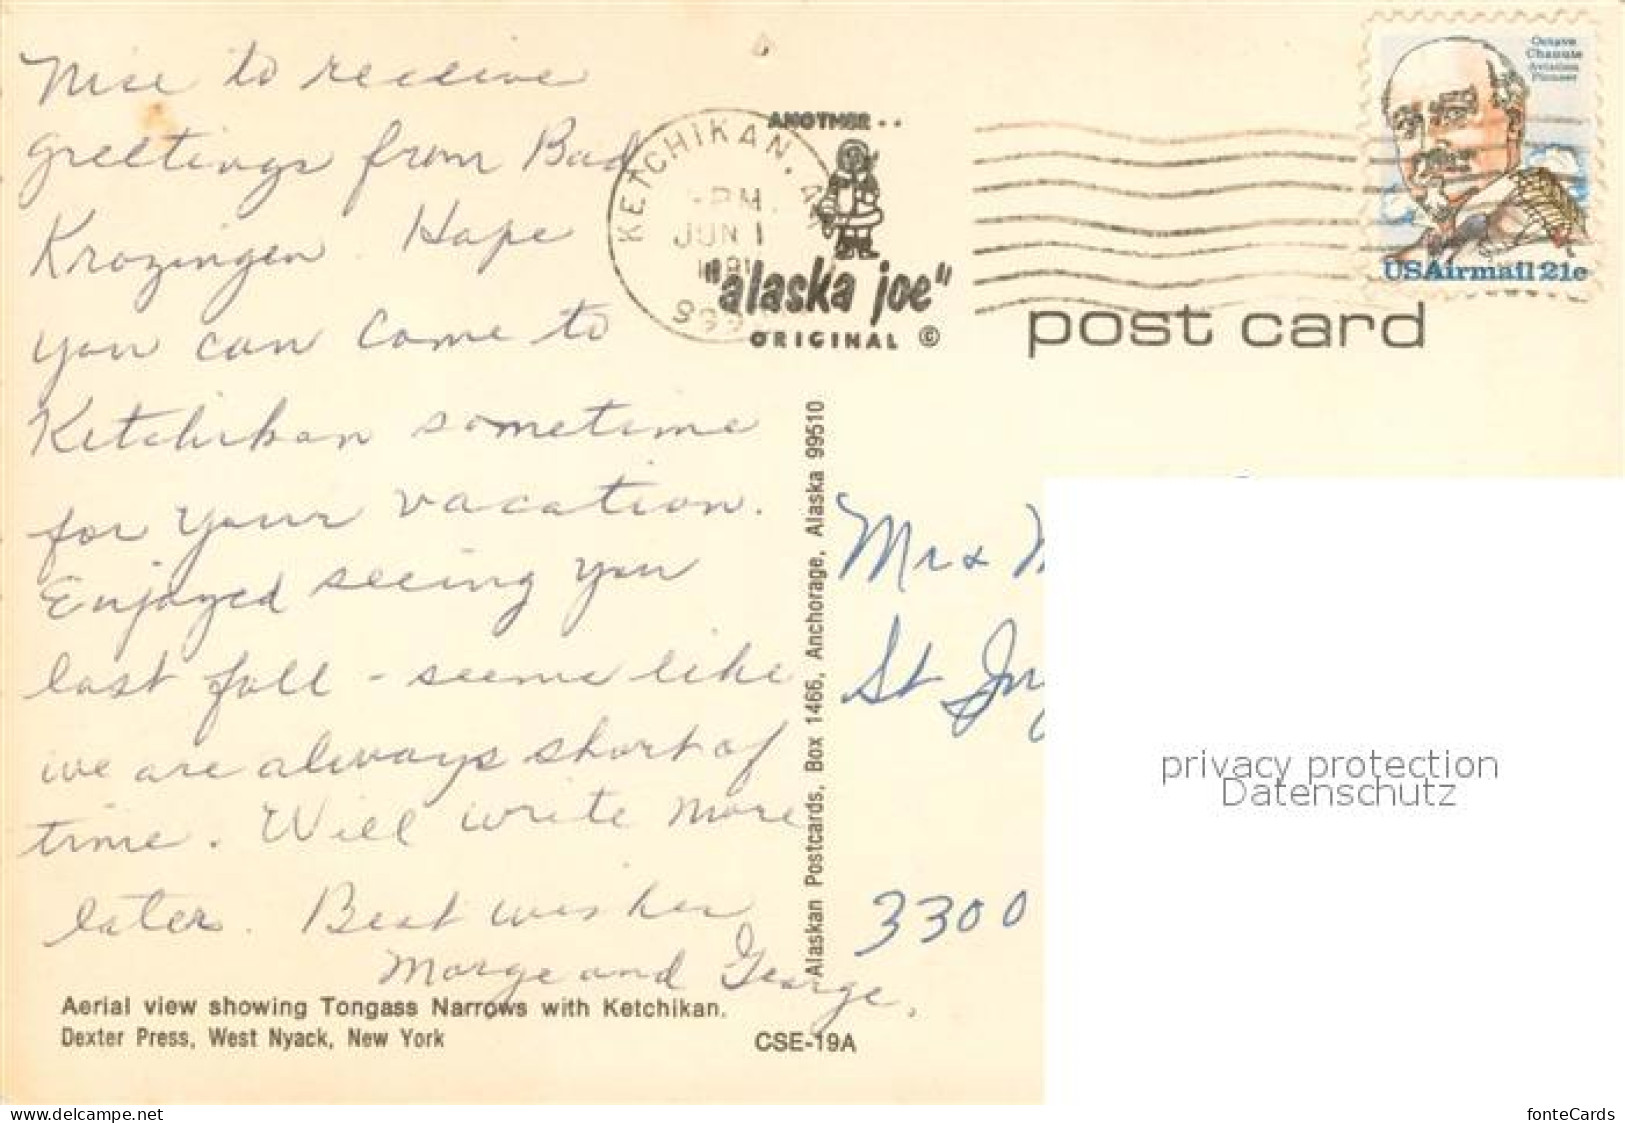 Nice to receive
greetings from Bad
Krozingen. Hope
you can come to
Ketchikan sometime
for your vacation.
Enjoyed seeing you
last fall - seems like
we are always short of
time. Will write more
later. Best wishes
Marge and George.
Aerial view showing Tongass Narrows with Ketchikan.
Dexter Press, West Nyack, New York
CSE-19A
KETCHIKAN, AK
PM
JUN 1
ANOTHER..
"alaska joe"
ORIGINAL ©
Octave
Chanute
Aviation
Pioneer
USAirmail 21c
post card
Alaskan Postcards, Box 1466, Anchorage, Alaska 99510
Mr &
St
3300
privacy protection
Datenschutz
www.delcampe.net
fonteCards